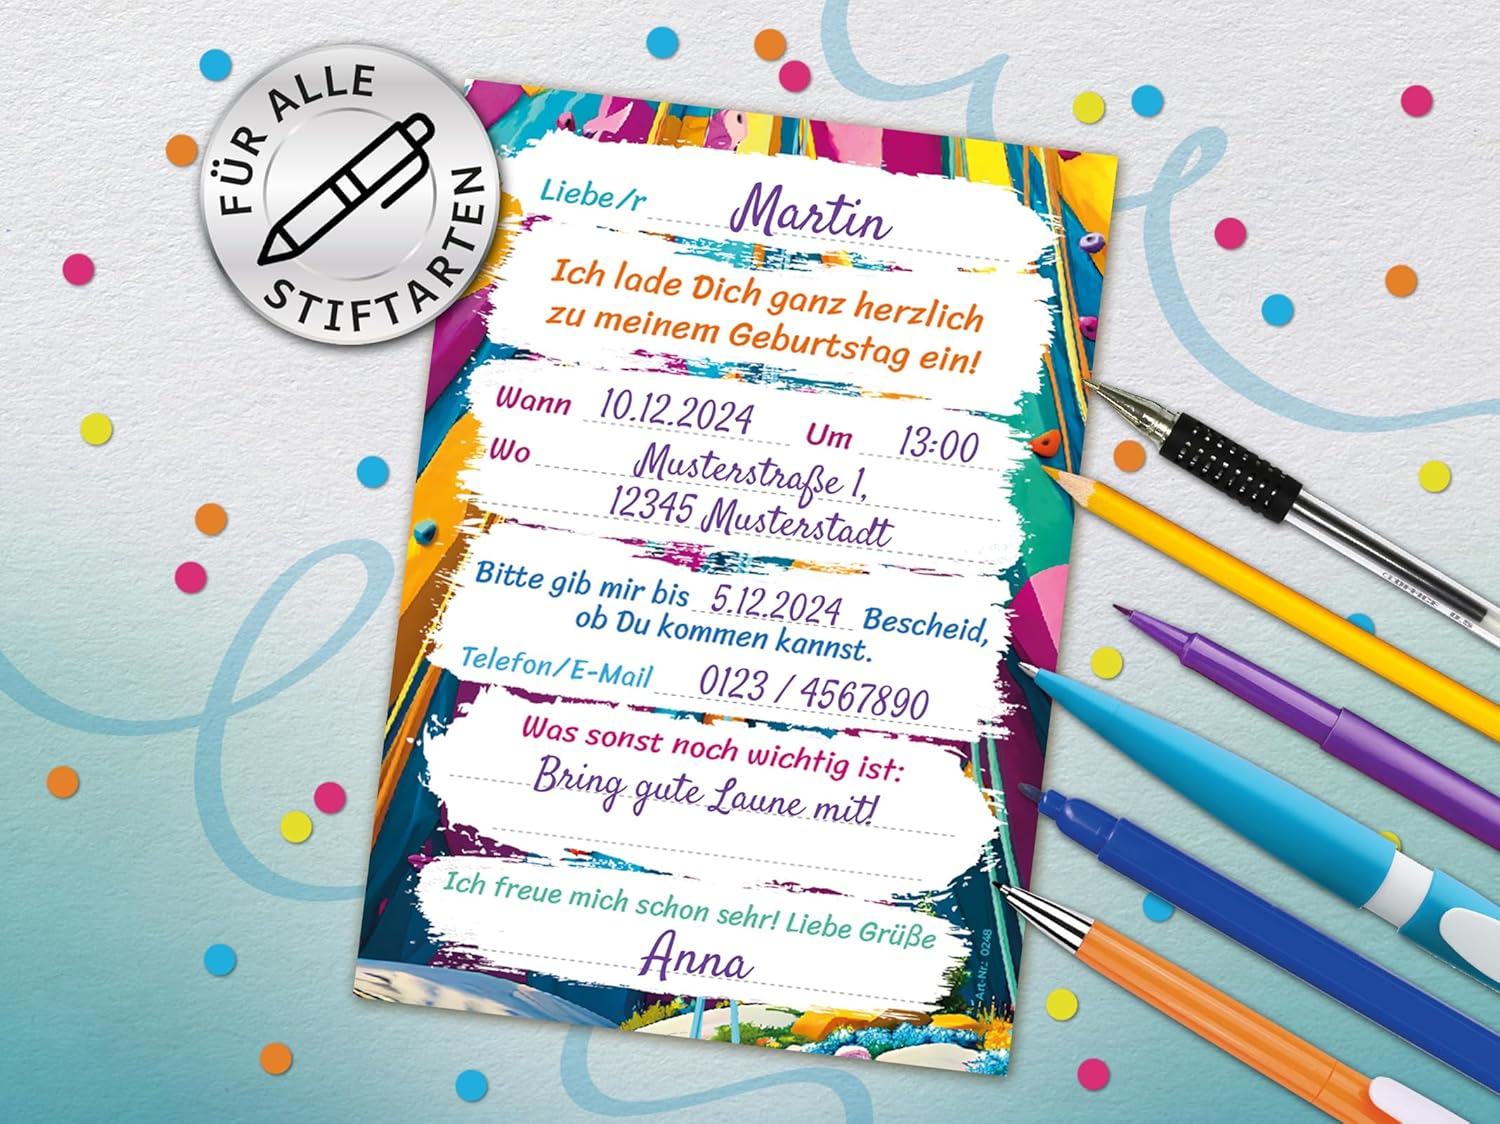 FÜR ALLE
STIFTARTEN
Liebe/r Martin
Ich lade Dich ganz herzlich
zu meinem Geburtstag ein!
Wann 10.12.2024 Um 13:00
Wo Musterstraße 1,
12345 Musterstadt
Bitte gib mir bis 5.12.2024 Bescheid,
ob Du kommen kannst.
Telefon/E-Mail 0123 / 4567890
Was sonst noch wichtig ist:
Bring gute Laune mit!
Ich freue mich schon sehr! Liebe Grüße
Anna
Art-Nr.: 0248